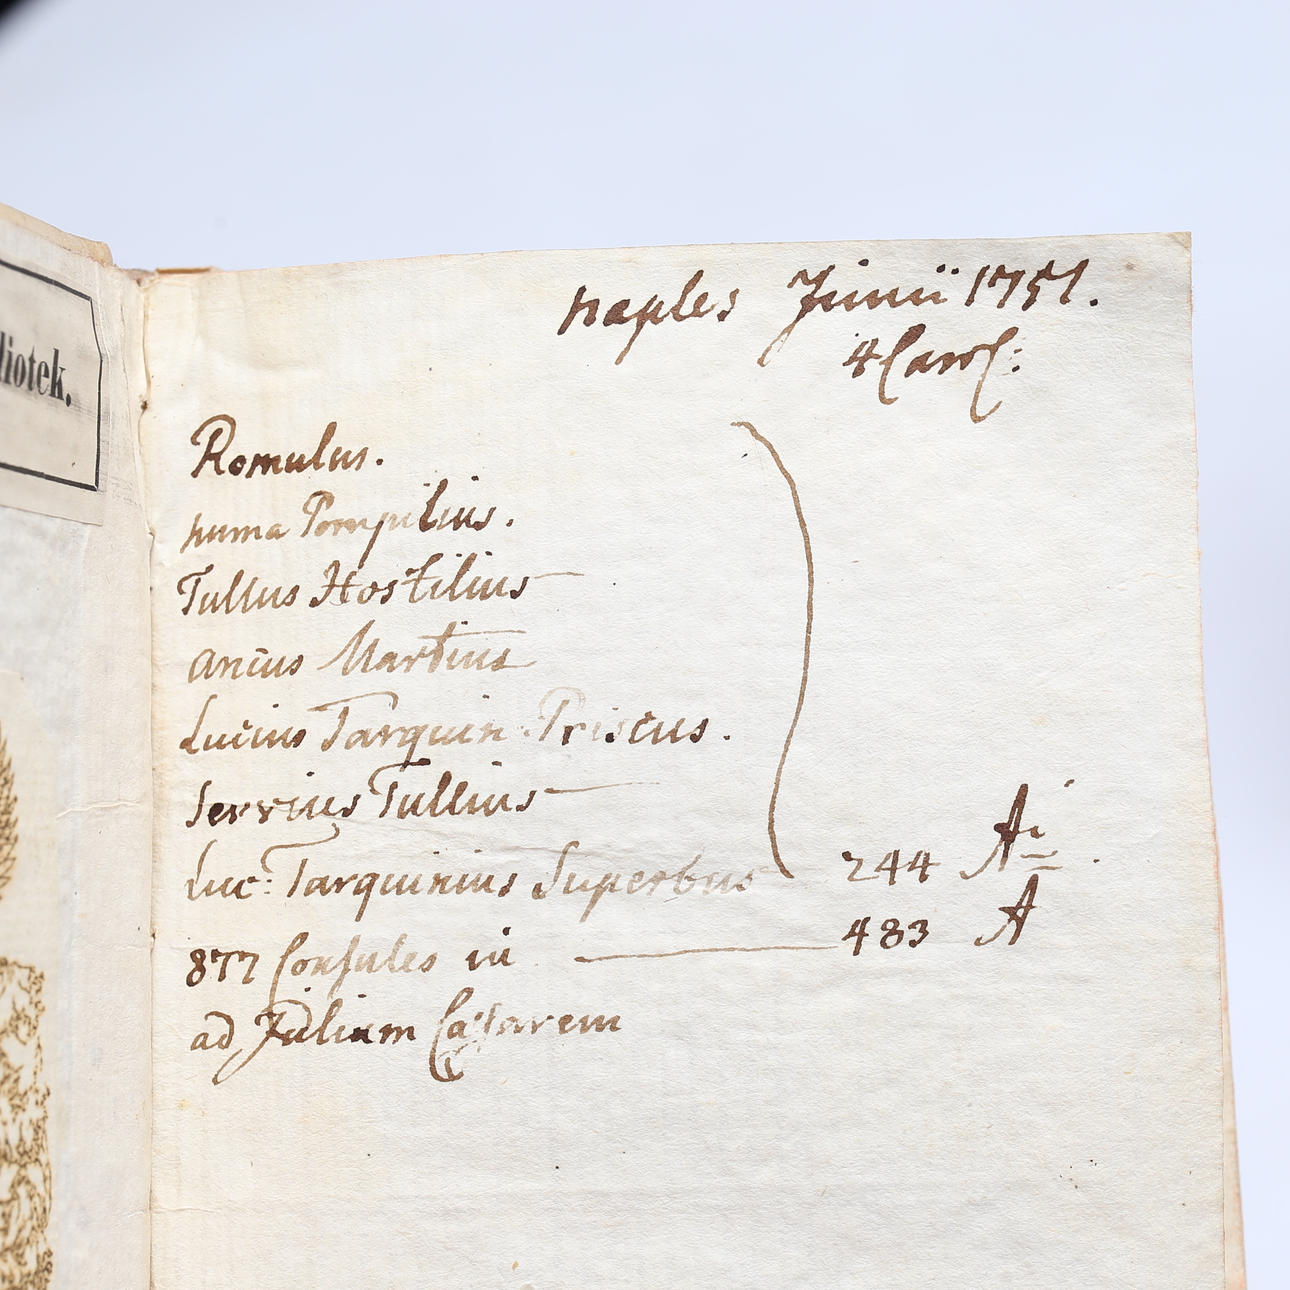 liotek.
naples Junii 1751.
4 Carl:
Romulus.
numa Pompilius.
Tullus Hostilius
ancus Martius
Lucius Tarquin Priscus.
Servius Tullius
Luc: Tarquinius Superbus 244 Ai
877 Consules in 483 A
ad Julium Cæsarem